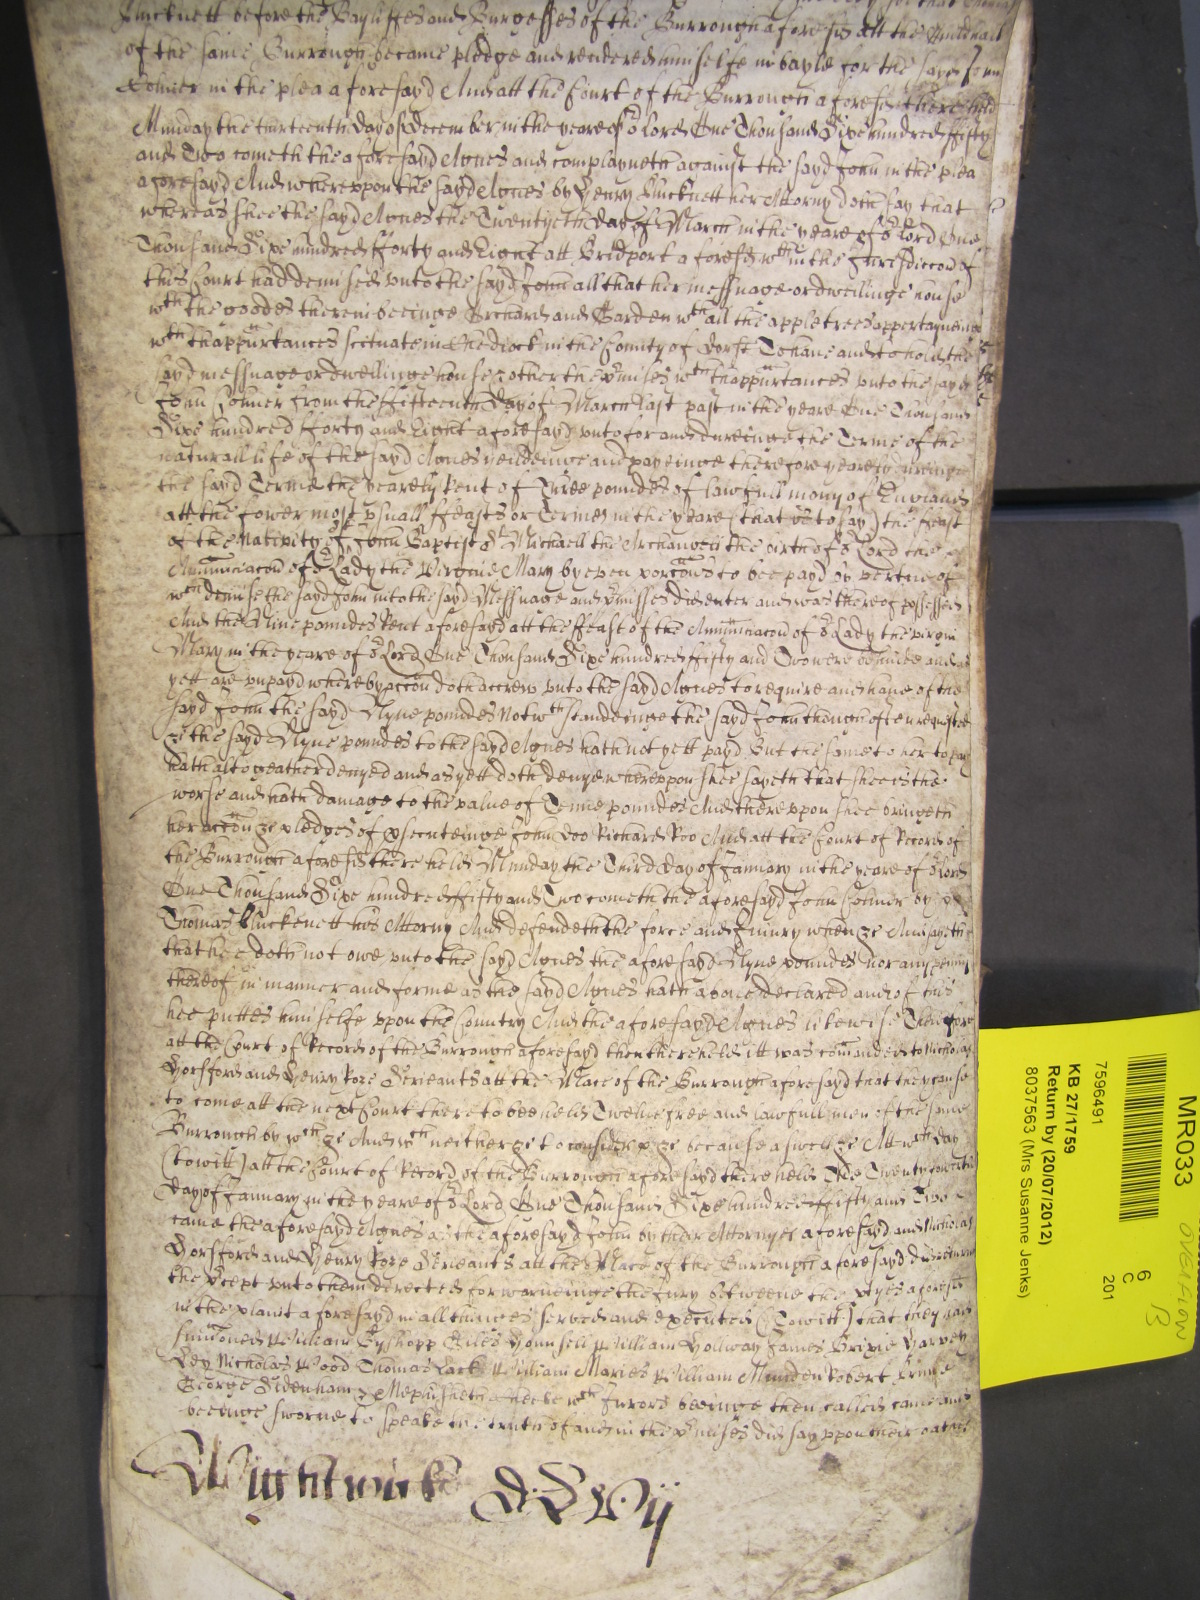 before the Bayliffes and Burgesses of the Burrough aforesd att the Guildhall
of the same Burrough became pledge and rendered himselfe in bayle for the sayd John
in the plea aforesayd And att the Court of the Burrough aforesd there held
Munday the thirteenth day of December in the yeare of or Lord One Thousand Sixe hundred ffifty
and Two cometh the aforesayd Agnes and complayneth against the sayd John in the plea
aforesayd And whereuppon the sayd Agnes by Henry her Attorny doth say that
whereas shee the sayd Agnes the Twentyeth day of March in the yeare of or Lord One
Thousand Sixe hundred fforty and Eight att Bridport aforesd wthin the Jurisdiccon of
this Court had demised unto the sayd John all that her messuage or dwellinge house
wth the therein beeinge Orchard and Garden wth all the appletrees appertayneinge
wth thappurtances scituate in in the County of Dorst To have and to hold the
sayd messuage or dwellinge house & other the pmises wth thappurtances unto the sayd
John from the ffifteenth day of March last past in the yeare One Thousand
Sixe hundred fforty and Eight aforesayd unto for and dureinge the Terme of the
naturall life of the sayd Agnes yeildeinge and payeinge therefore yearely dureinge
the sayd Terme the yearely Rent of Three poundes of lawfull mony of England
att the fower most usuall ffeasts or Termes in the yeare (that is to say) the feast
of the Nativity of John Baptist St Michaell the Archangell the birth of or Lord the
Annunciacon of or Lady the Virgine Mary by even porcons to bee payd by vertue of
wch demise the sayd John into the sayd Messuage and pmisses did enter and was thereof possessed
And the Nine poundes Rent aforesayd att the ffeast of the Annunciacon of or Lady the virgin
Mary in the yeare of or Lord One Thousand Sixe hundred ffifty and Two were behinde and as
yett are unpayd whereby accon doth accrew unto the sayd Agnes to require and have of the
sayd John the sayd Nyne poundes Notwthstandeinge the sayd John though often requested
&c the sayd Nyne poundes to the sayd Agnes hath not yett payd But the same to her to pay
hath altogeather denyed and as yett doth denye whereuppon shee sayeth that shee is the
worse and hath damage to the value of Tenne poundes And thereuppon shee bringeth
her accon &c pledges of psecuteinge John Doo Richard Roo And att the Court of Record of
the Burrough aforesd there held Munday the Third day of January in the yeare of or Lord
One Thousand Sixe hundred ffifty and Two cometh the aforesayd John by
Thomas his Attorny And defendeth the force and Injury when &c And sayeth
that hee doth not owe unto the sayd Agnes the aforesayd Nyne poundes nor any penny
thereof in manner and forme as the sayd Agnes hath above declared and of this
hee puttes himselfe uppon the Country And the aforesayd Agnes likewise Therefore
att the Court of Record of the Burrough aforesayd then there held itt was comanded to Nicholas
Horsford and Henry Serieants att the Mace of the Burrough aforesayd that they cause
to come att the next Court there to bee held Twelve free and lawfull men of the same
Burrough by wch &c And wch neither &c to &c because aswell &c Att wch day
(to witt) att the Court of Record of the Burrough aforesayd there held the Twenty fowerth
day of January in the yeare of or Lord One Thousand Sixe hundred ffifty and Two
came the aforesayd Agnes as the aforesayd John by their Attornyes aforesayd and Nicholas
Horsford and Henry Serieants att the Mace of the Burrough aforesayd did returne
the pcept unto them directed for warneinge the Jury betweene the ptyes aforesd
in the plaint aforesayd in all thinges served and executed (to witt) that they have
sumoned William Byshopp Giles William James
Nicholas Wood Thomas William William Munden Robert
George Sidenham & wch Jurors beeinge then called came and
beeinge sworne to speake the truth of and in the pmises did say uppon their oathes
Wightwick
MR033
7596491
KB 27/1759
Return by (20/07/2012)
8037563 (Mrs Susanne Jenks)
6
C
201
OVERFLOW